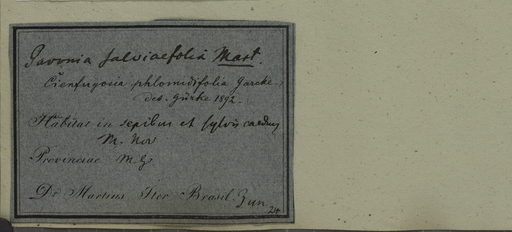 Pavonia salviaefolia Mart.
Cienfugosia phlomidifolia Garcke.
det. Gürke 1892.
Habitat in sepibus et sylvis caeduis
M. Nov
Provinciae M. G.
Dr. Martius Iter Brasil. Jun